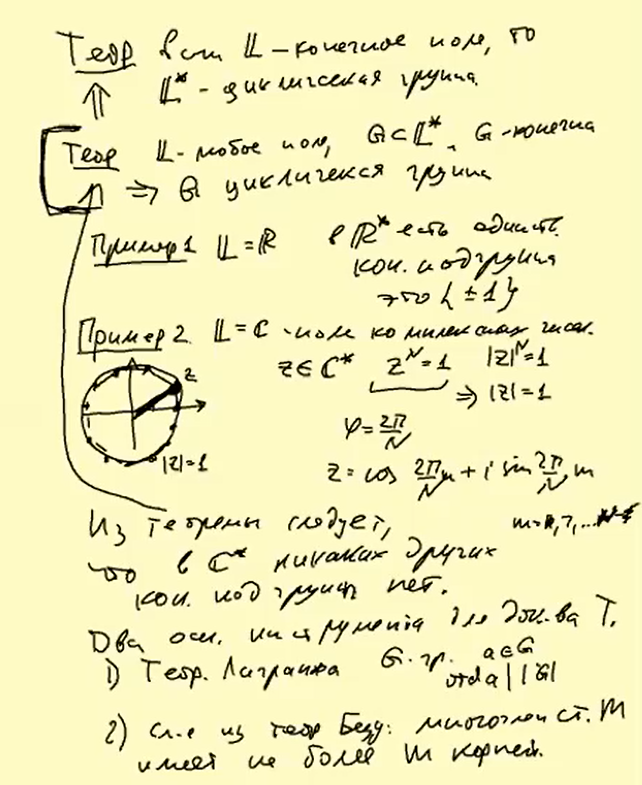 Теор Если 𝕃 – конечное поле, то
𝕃* – циклическая группа.
⇑
Теор 𝕃 – любое поле, G ⊂ 𝕃*, G – конечна
⇑ ⇒ G циклическая группа
Пример 1 𝕃 = ℝ в ℝ* есть единств.
кон. подгруппа
это {±1}
Пример 2. 𝕃 = ℂ – поле комплексных чисел.
z ∈ ℂ* z^N = 1 |z|^N = 1
⇒ |z| = 1
z
φ = 2π/N
|z| = 1
z = cos 2π/N m + i sin 2π/N m
m = 0, 1, ...
Из теоремы следует,
что в ℂ* никаких других
кон. подгрупп нет.
Два осн. инструмента для док-ва Т.
1) Теор. Лагранжа G - гр. a ∈ G
ord a | |G|
2) сл-е из теор Безу: многочлен ст. m
имеет не более m корней.